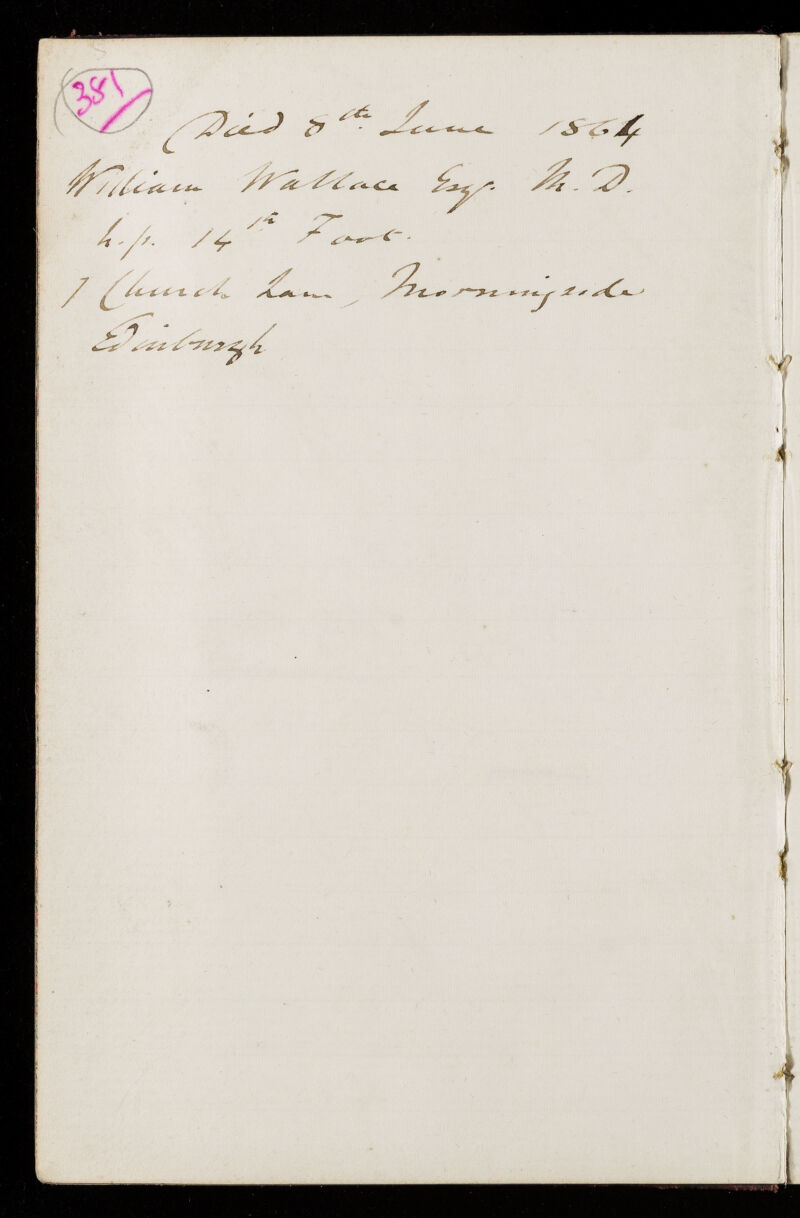 381
Died 8th June 1864
William Wallace Esqr. M. D.
h.p. 14th Foot.
7 Church Lane, Morningside
Edinburgh